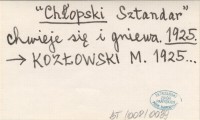 "Chłopski Sztandar"
chwieje się i gniewa. 1925.
→ KOZŁOWSKI M. 1925...